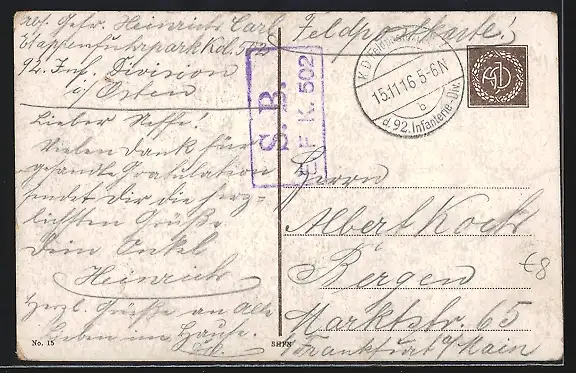 Abs. Gefr. Heinrich Carl
Etappenfuhrparkkol. 502
92. Inf. Division
i/Osten
Lieber Neffe!
Vielen Dank für
gesandte Gratulation
sendet Dir die herz-
lichsten Grüße
Dein Onkel
Heinrich
Herzl. Grüße an alle
Lieben im Hause.
No. 15
S. B.
E. F. K. 502
Feldpostkarte
K. D. Feldpost
15.11.16 5-6N
b
d. 92. Infanterie-Div.
Herrn
Albert Koch
Bergen
Marktstr. 65
Frankfurt a/Main
€8